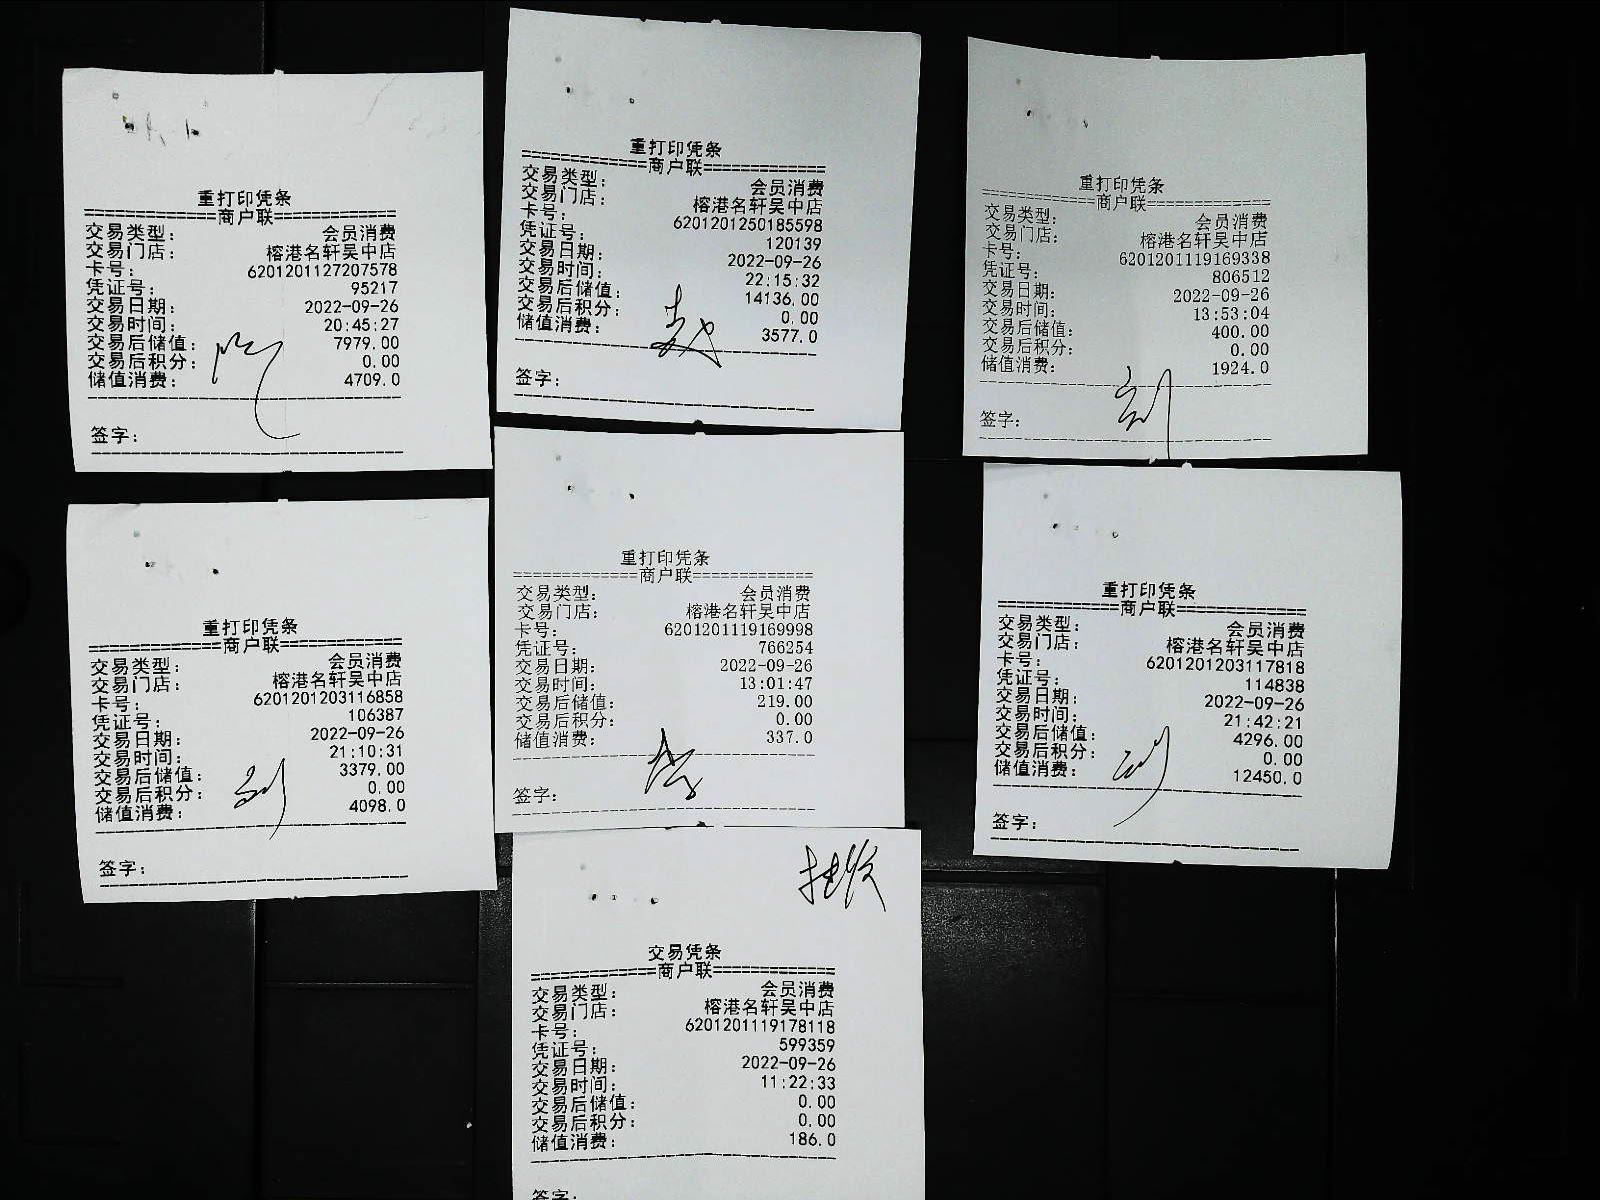 重打印凭条
=============商户联=============
交易类型: 会员消费
交易门店: 榕港名轩吴中店
卡号: 6201201127207578
凭证号: 95217
交易日期: 2022-09-26
交易时间: 20:45:27
交易后储值: 7979.00
交易后积分: 0.00
储值消费: 4709.0
签字:
重打印凭条
=============商户联=============
交易类型: 会员消费
交易门店: 榕港名轩吴中店
卡号: 6201201250185598
凭证号: 120139
交易日期: 2022-09-26
交易时间: 22:15:32
交易后储值: 14136.00
交易后积分: 0.00
储值消费: 3577.0
签字:
重打印凭条
=============商户联=============
交易类型: 会员消费
交易门店: 榕港名轩吴中店
卡号: 6201201119169338
凭证号: 806512
交易日期: 2022-09-26
交易时间: 13:53:04
交易后储值: 400.00
交易后积分: 0.00
储值消费: 1924.0
签字:
重打印凭条
=============商户联=============
交易类型: 会员消费
交易门店: 榕港名轩吴中店
卡号: 6201201203116858
凭证号: 106387
交易日期: 2022-09-26
交易时间: 21:10:31
交易后储值: 3379.00
交易后积分: 0.00
储值消费: 4098.0
签字:
重打印凭条
=============商户联=============
交易类型: 会员消费
交易门店: 榕港名轩吴中店
卡号: 6201201119169998
凭证号: 766254
交易日期: 2022-09-26
交易时间: 13:01:47
交易后储值: 219.00
交易后积分: 0.00
储值消费: 337.0
签字:
重打印凭条
=============商户联=============
交易类型: 会员消费
交易门店: 榕港名轩吴中店
卡号: 6201201203117818
凭证号: 114838
交易日期: 2022-09-26
交易时间: 21:42:21
交易后储值: 4296.00
交易后积分: 0.00
储值消费: 12450.0
签字:
交易凭条
=============商户联=============
交易类型: 会员消费
交易门店: 榕港名轩吴中店
卡号: 6201201119178118
凭证号: 599359
交易日期: 2022-09-26
交易时间: 11:22:33
交易后储值: 0.00
交易后积分: 0.00
储值消费: 186.0
签字: